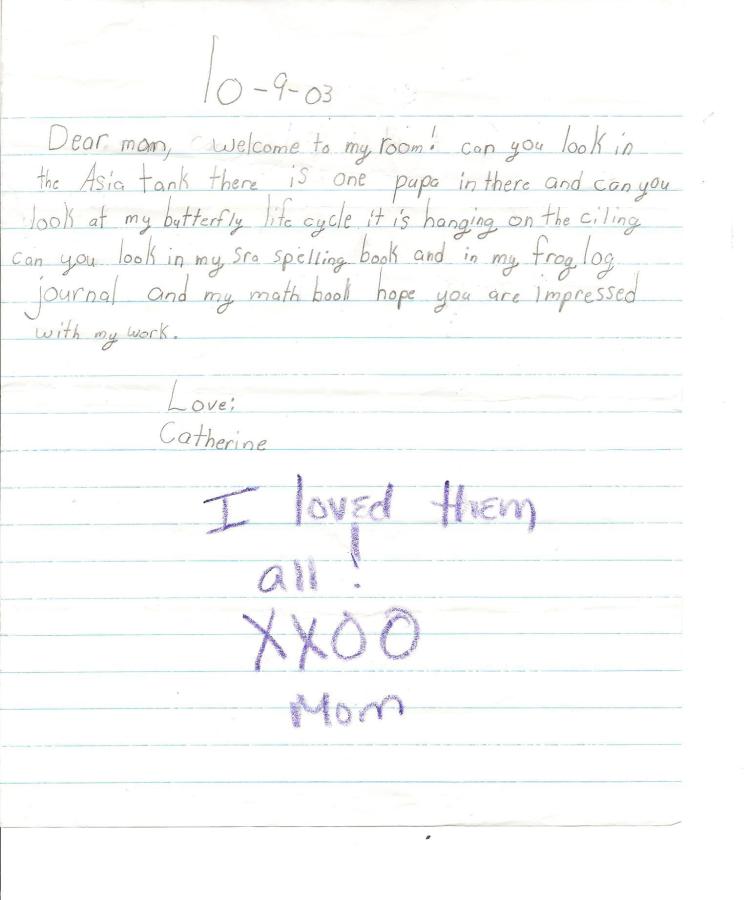 10-9-03
Dear mom, welcome to my room! can you look in
the Asia tank there is one pupa in there and can you
look at my butterfly life cycle it is hanging on the ciling
can you look in my Sra spelling book and in my frog log
journal and my math book hope you are impressed
with my work.
Love:
Catherine
I loved them
all!
XXOO
Mom